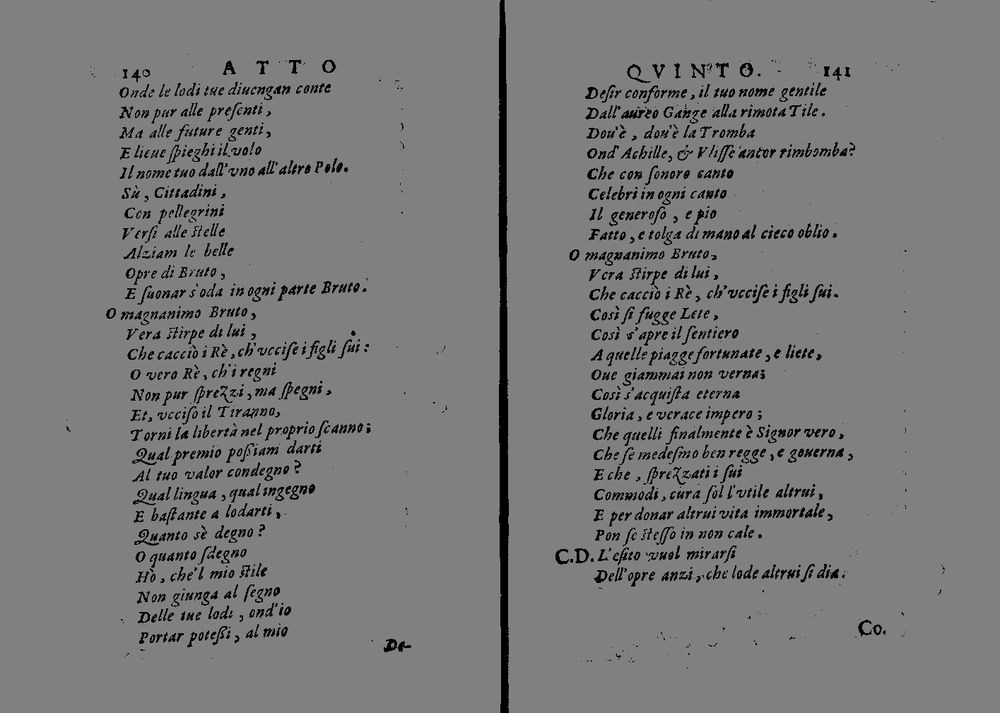 140 ATTO
Onde le lodi tue diuengan conte
Non pur alle presenti,
Ma alle future genti,
E lieue spieghi il volo
Il nome tuo dall'vno all'altro Polo.
Sù, Cittadini,
Con pellegrini
Versi alle stelle
Alziam le belle
Opre di Bruto,
E suonar s'oda in ogni parte Bruto.
O magnanimo Bruto,
Vera stirpe di lui,
Che cacciò i Rè, ch'vccise i figli sui:
O vero Rè, ch'i regni
Non pur sprezzi, ma spegni,
Et, vcciso il Tiranno,
Torni la libertà nel proprio scanno;
Qual premio possiam darti
Al tuo valor condegno?
Qual lingua, qual ingegno
E bastante a lodarti,
Quanto sè degno?
O quanto sdegno
Hò, che'l mio stile
Non giunga al segno
Delle tue lodi, ond'io
Portar potessi, al mio
De-
QVINTO. 141
Desir conforme, il tuo nome gentile
Dall'aureo Gange alla rimota Tile.
Dou'è, dou'è la Tromba
Ond'Achille, & Vlisse ancor rimbomba?
Che con sonoro canto
Celebri in ogni canto
Il generoso, e pio
Fatto, e tolga di mano al cieco oblio.
O magnanimo Bruto,
Vera stirpe di lui,
Che cacciò i Rè, ch'vccise i figli sui.
Così si fugge Lete,
Così s'apre il sentiero
A quelle piagge fortunate, e liete,
Oue giammai non verna;
Così s'acquista eterna
Gloria, e verace impero;
Che quelli finalmente è Signor vero,
Che se medesmo ben regge, e gouerna,
E che, sprezzati i sui
Commodi, cura sol l'vtile altrui,
E per donar altrui vita immortale,
Pon se stesso in non cale.
C.D. L'esito vuol mirarsi
Dell'opre anzi, che lode altrui si dia.
Co.